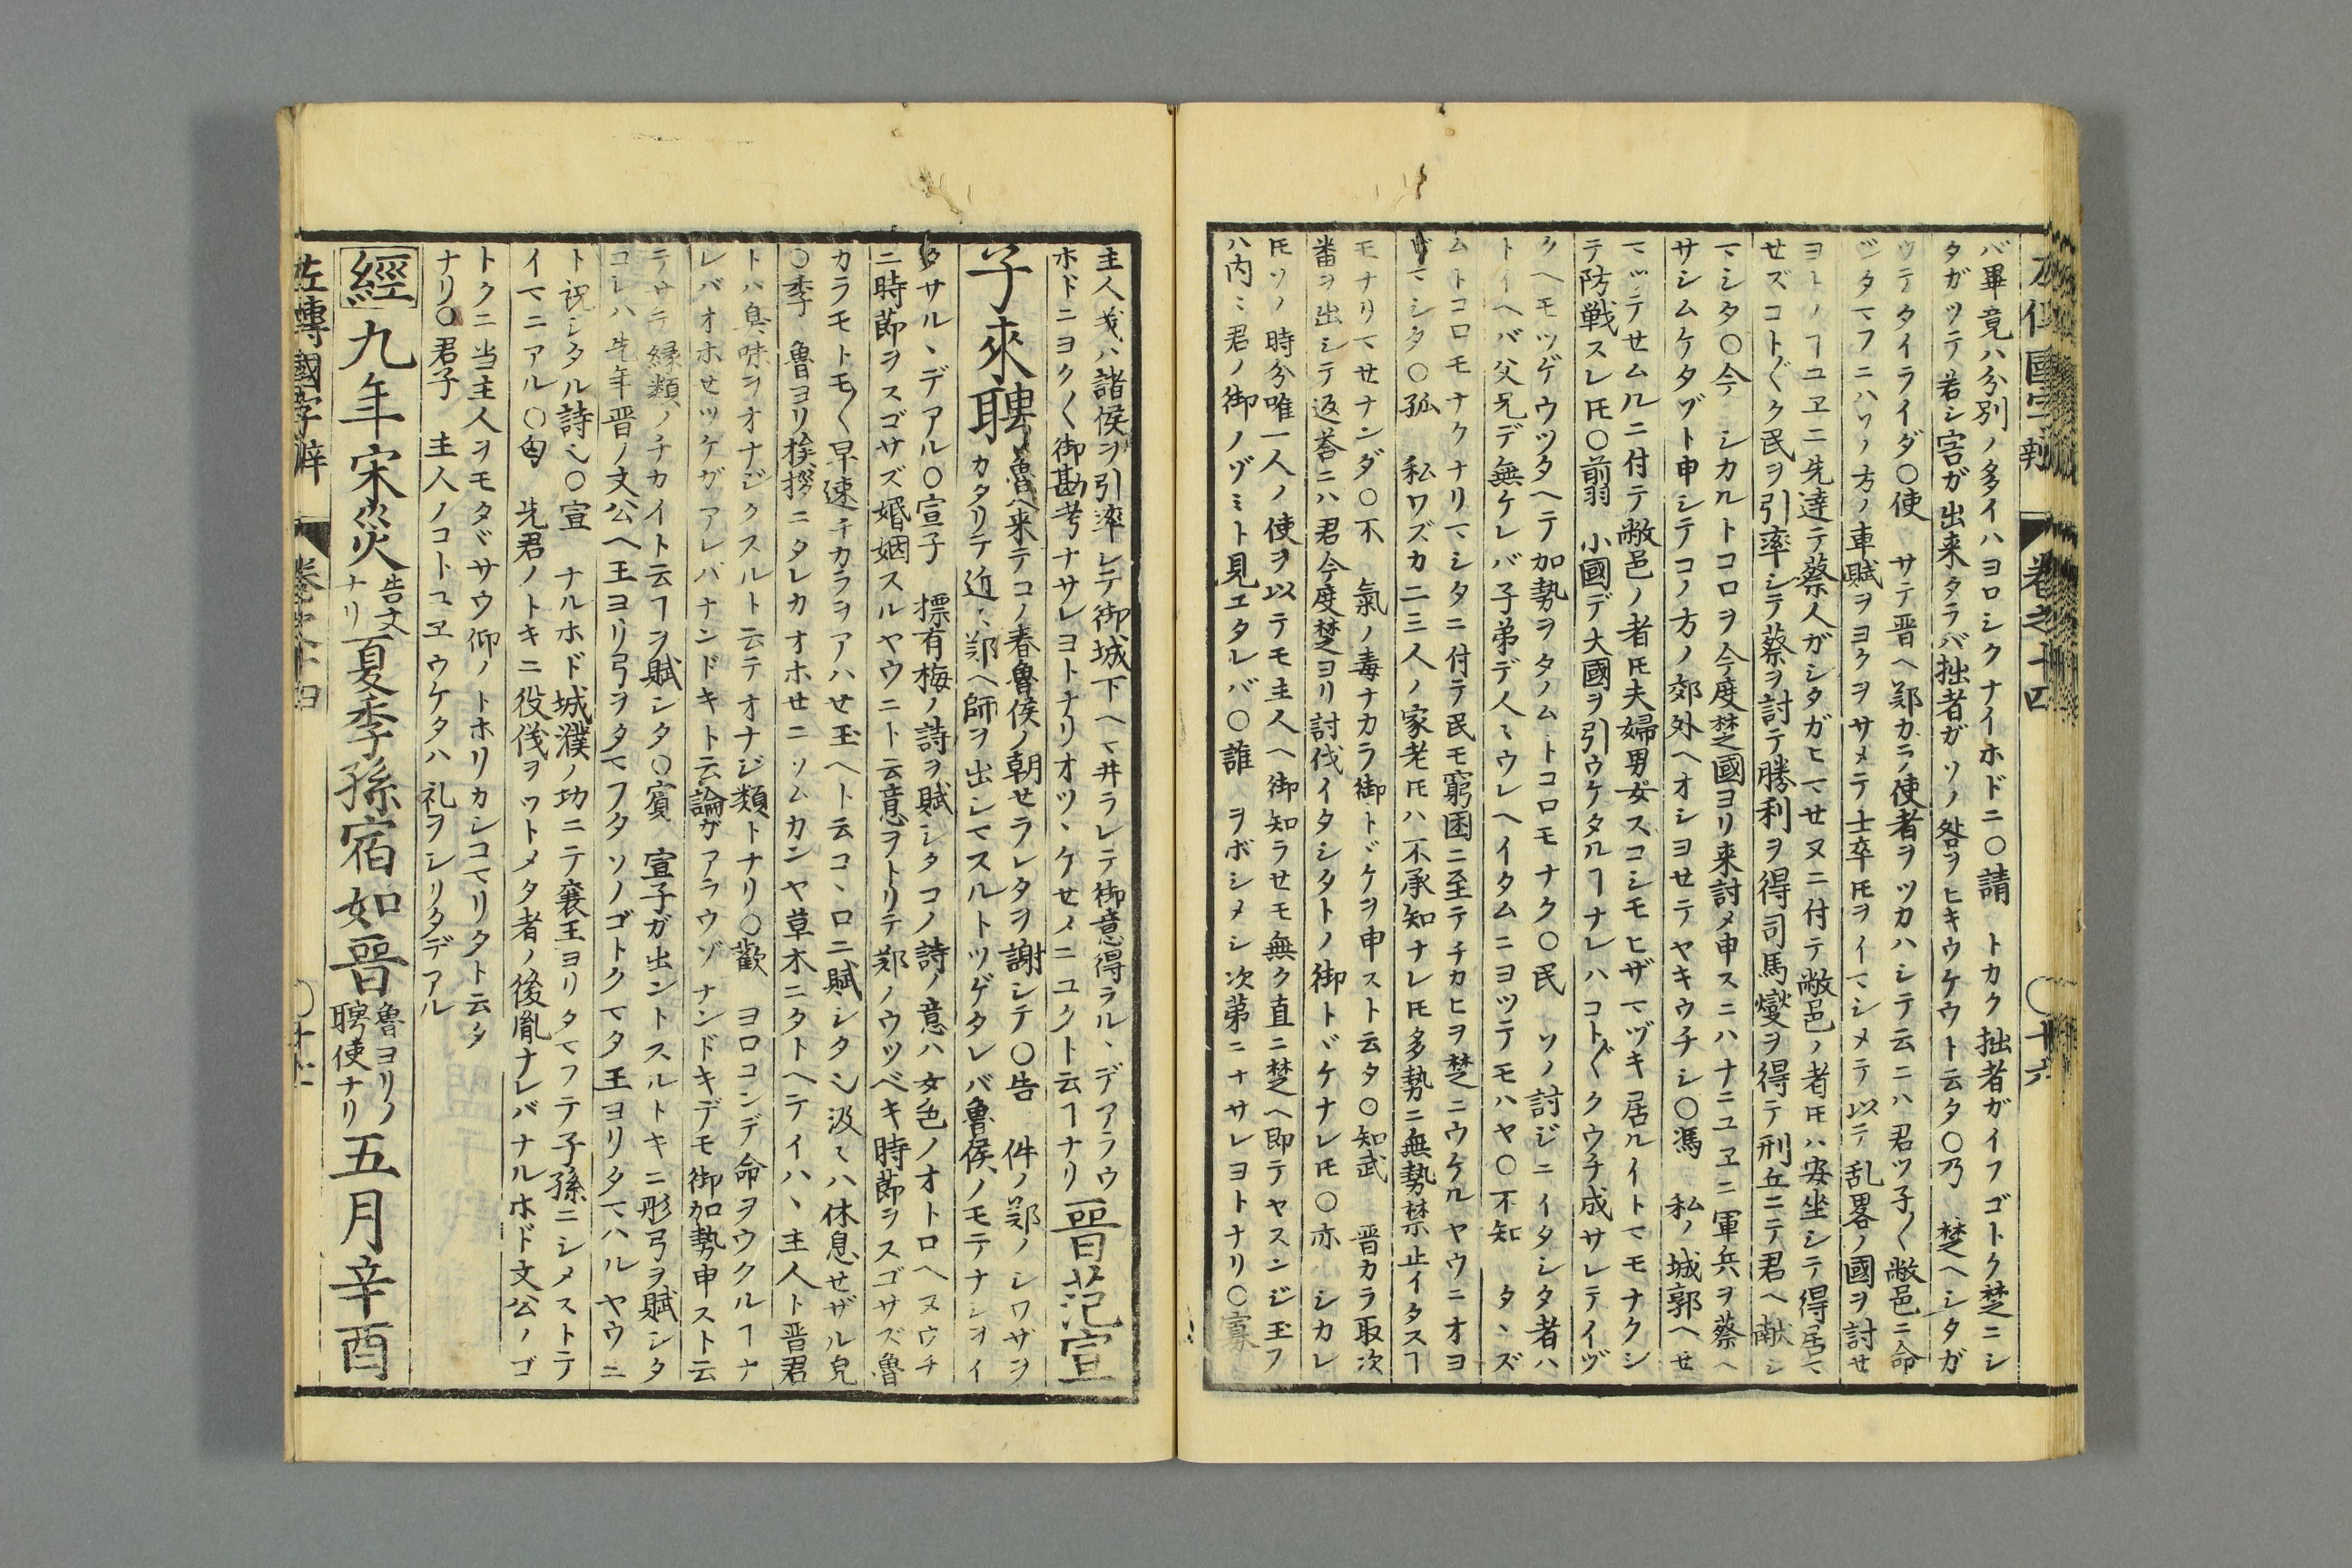 バ畢竟ハ分別ノ多イハヨロシクナイホドニ〇請　トカク拙者ガイフゴトク楚ニシ
タガツテ若シ害ガ出来タラバ拙者ガソノ咎ヲヒキウケウト云タ〇乃　楚ヘシタガ
ツテタイライダ〇使　サテ晋ヘ鄭カラノ使者ヲツカハシテ云ニハ君ツ子〱敝邑ニ命
ジタマフニハソノ方ノ車賦ヲヨクヲサメテ士卒𪜈ヲイマシメテ以テ乱畧ノ國ヲ討せ
ヨトノヿユヱニ先達テ蔡人ガシタガヒマせヌニ付テ敝邑ノ者𪜈ハ安坐シテ得居マ
せズコト〲ク民ヲ引率シテ蔡ヲ討テ勝利ヲ得司馬燮ヲ得テ刑丘ニテ君ヘ献シ
マシタ〇今　シカルトコロヲ今度楚國ヨリ来討メ申スニハナニユヱニ軍兵ヲ蔡ヘ
サシムケタゾト申シテコノ方ノ郊外ヘオシヨせテヤキウチシ〇馮　私ノ城郭ヘせ
マツテせムルニ付テ敝邑ノ者𪜈夫婦男女スコシモヒザマヅキ居ルイトマモナクシ
テ防戦スレ𪜈〇翦　小國デ大國ヲ引ウケタルヿナレハコト〲クウチ成サレテイヅ
クヘモツゲウツタヘテ加勢ヲタノムトコロモナク〇民　ソノ討ジニイタシタ者ハ
トイヘバ父兄デ無ケレバ子弟デ人〻ウレヘイタムニヨツテモハヤ〇不知　タヽズ
ムトコロモナクナリマシタニ付テ民モ窮困ニ至テチカヒヲ楚ニウケルヤウニオヨ
ビマシタ〇孤　私ワズカ二三人ノ家老𪜈ハ不承知ナレ𪜈多勢ニ無勢禁止イタスヿ
モナリマせナンダ〇不　氣ノ毒ナカラ御トヾケヲ申スト云タ〇知武　晋カラ取次
番ヲ出シテ返荅ニハ君今度楚ヨリ討伐イタシタトノ御トヾケナレ𪜈〇亦　シカレ
𪜈ソノ時分唯一人ノ使ヲ以テモ主人ヘ御知ラせモ無ク直ニ楚ヘ即テヤスンジ玉フ
ハ内〻君ノ御ノゾミト見ヱタレバ〇誰　ヲボシメシ次第ニナサレヨトナリ〇寡
卷之十四
〇十六
主人我ハ諸侯ヲ引率レテ御城下ヘマ井ラレテ御意得ラルヽデアラウ
ホドニヨク〱御勘考ナサレヨトナリオツヽケせメニユクト云ヿナリ
晋范宣
子來聘
魯ヘ来テコノ春魯侯ノ朝せラレタヲ謝シテ〇告　件ノ鄭ノシワザヲ
カタリテ近〻鄭ヘ師ヲ出シマスルトツゲタレバ魯侯ノモテナシヲイ
タサルヽデアル〇宣子　摽有梅ノ詩ヲ賦シタコノ詩ノ意ハ女色ノオトロヘヌウチ
ニ時節ヲスゴサズ婚姻スルヤウニト云意ヲトリテ鄭ノウツベキ時節ヲスゴサズ魯
カラモトモ〱早速チカラヲアハせ玉ヘト云コヽロニ賦シタ也汲〻ハ休息せザル皃
〇季　魯ヨリ挨拶ニタレカオホせニソムカンヤ草木ニタトヘテイハヽ主人ト晋君
トハ臭味ヲオナジクスルト云テオナジ類トナリ〇歡　ヨロコンデ命ヲウクルヿナ
レバオホせツケガアレバナンドキト云論ガアラウゾナンドキデモ御加勢申スト云
テサテ縁類ノチカイト云ヿヲ賦シタ〇賓　宣子ガ出ントスルトキニ彤弓ヲ賦シタ
コレハ先年晋ノ文公ヘ王ヨリ弓ヲタマフタソノゴトクマタ王ヨリタマハルヤウニ
ト祝シタル詩也〇宣　ナルホド城濮ノ功ニテ襄王ヨリタマフテ子孫ニシメストテ
イマニアル〇匄　先君ノトキニ役伐ヲツトメタ者ノ後胤ナレバナルホド文公ノゴ
トクニ当主人ヲモタヾサウ仰ノトホリカシコマリタト云タ
ナリ〇君子　主人ノコトユヱウケタハ礼ヲシリタデアル
經九年宋災
告文
ナリ
夏季孫宿如晋
魯ヨリノ
聘使ナリ
五月辛酉
左傳國字辯
卷之十四